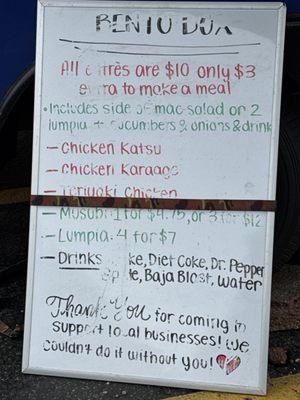 BENTO BOX
All entrées are $10 only $3
extra to make a meal
• Includes side of mac salad or 2
lumpia + cucumbers & onions & drink
- Chicken Katsu
- Chicken Karaage
- Teriyaki Chicken
- Musubi: 1 for $4.75, or 3 for $12
- Lumpia: 4 for $7
- Drinks Coke, Diet Coke, Dr. Pepper
Sprite, Baja Blast, water
Thank You for coming in
Support local businesses! We
couldn't do it without you!